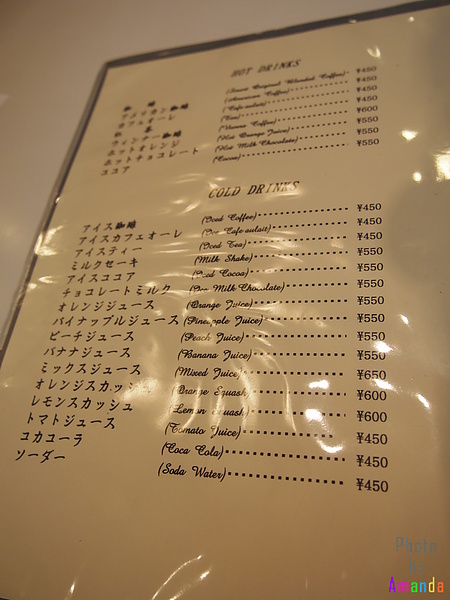 HOT DRINKS
珈 琲 (Original Blended Coffee) ¥450
アメリカン珈琲 (American Coffee) ¥450
カフェオーレ (Cafe aulait) ¥450
紅 茶 (Tea) ¥450
ウィンナー珈琲 (Vienna Coffee) ¥600
ホットオレンジ (Hot Orange Juice) ¥550
ホットチョコレート (Hot Milk Chocolate) ¥550
ココア (Cocoa) ¥550
COLD DRINKS
アイス珈琲 (Iced Coffee) ¥450
アイスカフェオーレ (Ice Cafe aulait) ¥450
アイスティー (Iced Tea) ¥450
ミルクセーキ (Milk Shake) ¥550
アイスココア (Iced Cocoa) ¥550
チョコレートミルク (Ice Milk Chocolate) ¥550
オレンジジュース (Orange Juice) ¥550
パイナップルジュース (Pineapple Juice) ¥550
ピーチジュース (Peach Juice) ¥550
バナナジュース (Banana Juice) ¥550
ミックスジュース (Mixed Juice) ¥650
オレンジスカッシュ (Orange Squash) ¥600
レモンスカッシュ (Lemon Squash) ¥600
トマトジュース (Tomato Juice) ¥450
コカコーラ (Coca Cola) ¥450
ソーダー (Soda Water) ¥450
Photo
by
Amanda